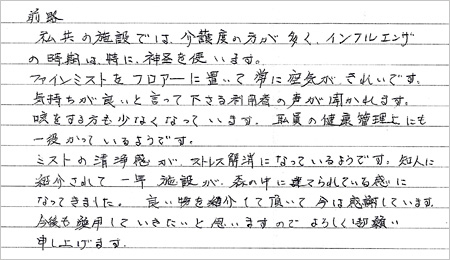 前略
私共の施設では、介護度の方が多く、インフルエンザ
の時期は、特に、神経を使います。
ファインミストをフロアーに置いて常に空気が、きれいです、
気持ちが良いと言って下さる利用者の声が聞かれます。
咳をする方も少なくなっています. 職員の健康管理上にも
一役かっているようです。
ミストの清浄感が、ストレス解消になっているようです。知人に
紹介されて一年 施設が、森の中に建てられている感に
なってきました. 良い物を紹介して頂いて今は感謝しています.
今後も愛用していきたいと思いますのでよろしくお願い
申し上げます.